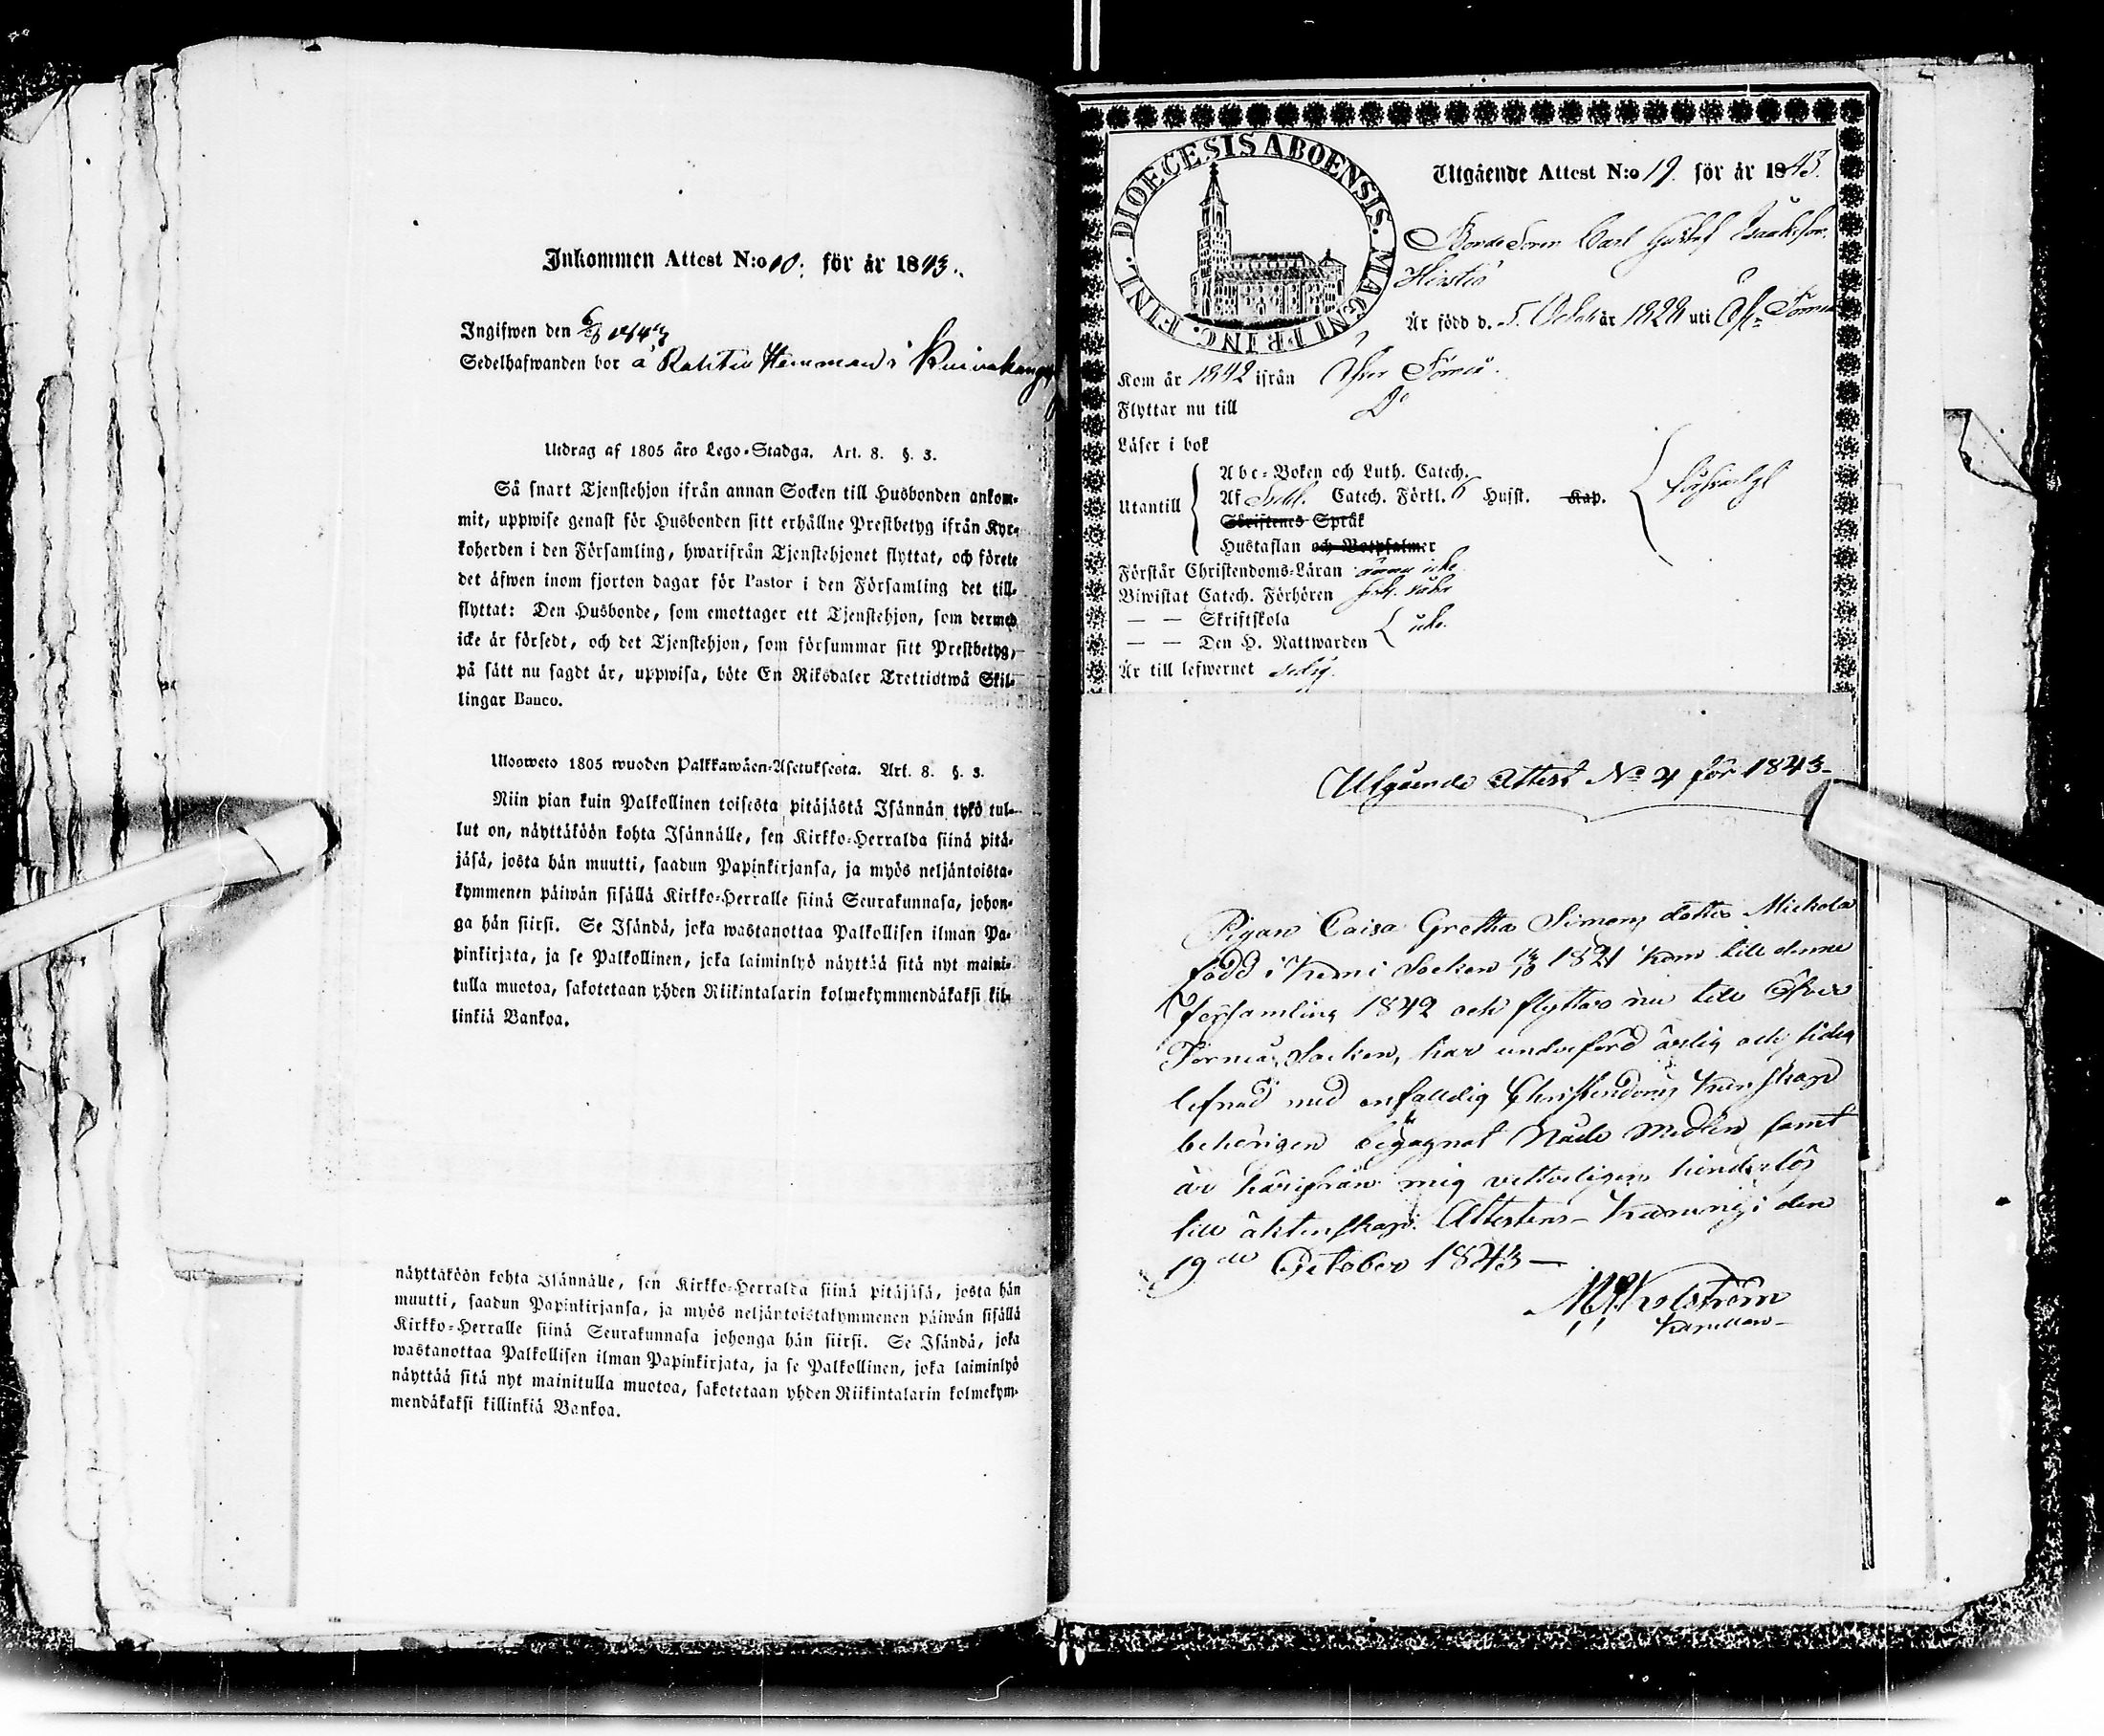 Inkommen Attest N:o 10. för år 1843.
Ingifwen den
Sedelhafwanden bor å Rahtu Hemman i Kuivakangas
Utdrag af 1805 års Lego-Stadga. Art. 8. §. 3.
Så snart Tjenstehjon ifrån annan Socken till Husbonden ankom-
mit, uppwise genast för Husbonden sitt erhållne Prestbetyg ifrån Kyr-
koherden i den Församling, hwarifrån Tjenstehjonet flyttat, och förete
det äfwen inom fjorton dagar för Pastor i den Församling det till-
flyttat: Den Husbonde, som emottager ett Tjenstehjon, som dermed
icke är försedt, och det Tjenstehjon, som försummar sitt Prestbetyg,
på sätt nu sagdt är, uppwisa, böte En Riksdaler Trettiotwå Skil-
lingar Banco.
Ulosweto 1805 wuoden Palkkawäen-Asetuksesta. Art. 8. §. 3.
Niin pian kuin Palkollinen toisesta pitäjästä Isännän tykö tul-
lut on, näyttäköön kohta Isännälle, sen Kirkko-Herralda siinä pitä-
jäsä, josta hän muutti, saadun Papinkirjansa, ja myös neljäntoista-
kymmenen päiwän sisällä Kirkko-Herralle siinä Seurakunnasa, johon-
ga hän siirsi. Se Isändä, joka wastanottaa Palkollisen ilman Pa-
pinkirjata, ja se Palkollinen, joka laiminlyö näyttää sitä nyt maini-
tulla muotoa, sakotetaan yhden Riikintalarin kolmekymmendäkaksi kil-
linkiä Bankoa.
näyttäköön kohta Isännälle, sen Kirkko-Herralda siinä pitäjäsä, josta hän
muutti, saadun Papinkirjansa, ja myös neljäntoistakymmenen päiwän sisällä
Kirkko-Herralle siinä Seurakunnasa johonga hän siirsi. Se Isändä, joka
wastanottaa Palkollisen ilman Papinkirjata, ja se Palkollinen, joka laiminlyö
näyttää sitä nyt mainitulla muotoa, sakotetaan yhden Riikintalarin kolmekym-
mendäkaksi killinkiä Bankoa.
DIOECESIS ABOENSIS. MAGNI PRINC. FINL.
Utgående Attest N:o 19. för år 1843.
Bondesonen Carl Gustaf Isaaksson
Är född d. 5. Octob år 1828 uti Öfr Torneå
Kom år 1842 ifrån Öfver Torneå.
Flyttar nu till Do
Läser i bok
Utantill
Abc-Boken och Luth. Catech.
Af Catech. Förkl. 6 Hufst. Kap.
Skriftenes Språk
Hustaflan och Botpsalmer
försvarligt
Förstår Christendoms-Läran ännu icke
Biwistat Catech. Förhören
— — Skriftskola
— — Den H. Nattwarden
icke.
Är till lefwernet sedig.
Utgående Attest No 4 för 1843–
Pigan Caisa Gretha Simons dotter Mickola
född i Kemi Socken 14/10 1821 kom till denne
församling 1842 och flyttar nu till Öfver
Torneå Socken, har under förd ärlig och sedig
lefnad med enfaldig Christendoms kunskap
behörigen begagnat Nåde Medlen samt
är härifrån mig vetterligen hinderlös
till äktenskap. Attesteras – Karungi den
19de October 1843 —